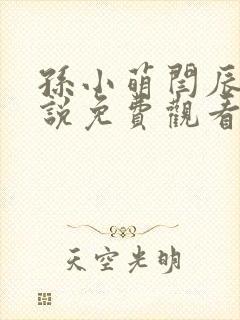 孫小萌閆辰
說免費觀看
天空光明